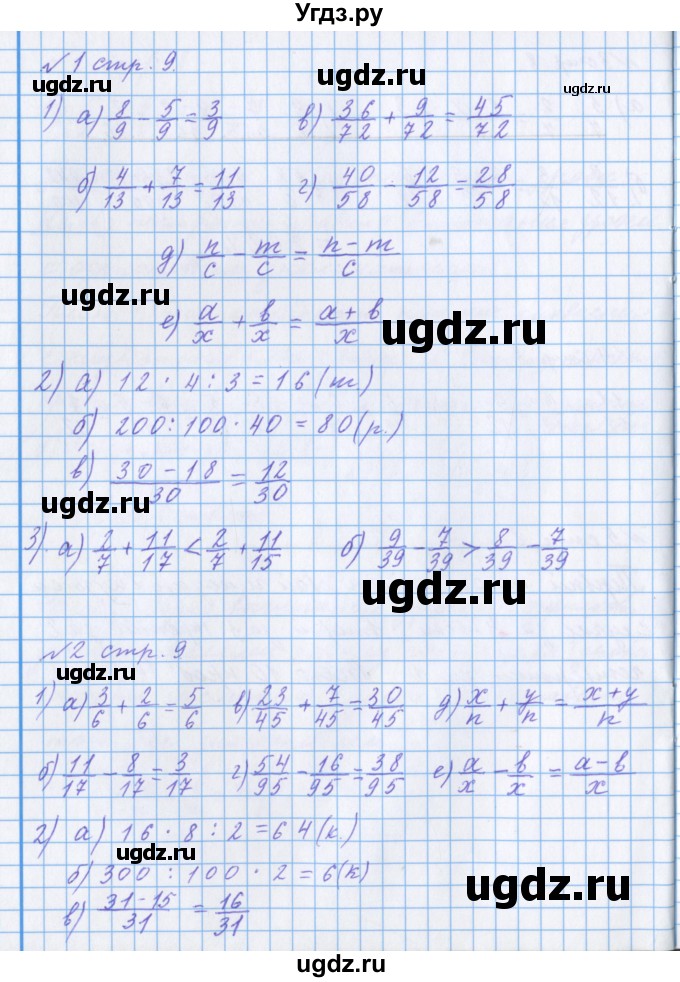 Угдз.ру
№1 стр. 9
ugdz.ru ugdz.ru ugdz.ru
1) а) 8/9 - 5/9 = 3/9 в) 36/72 + 9/72 = 45/72
б) 4/13 + 7/13 = 11/13 г) 40/58 - 12/58 = 28/58
д) n/c - m/c = n-m/c
ugdz.ru
е) a/x + b/x = a+b/x
ugdz.ru
2) а) 12 · 4 : 3 = 16 (т)
б) 200 : 100 · 40 = 80 (р.)
в) 30-18/30 = 12/30
ugdz.ru
3) а) 2/7 + 11/17 < 2/7 + 11/15 б) 9/39 - 7/39 > 8/39 - 7/39
ugdz.ru
№2 стр. 9
ugdz.ru
1) а) 3/6 + 2/6 = 5/6 в) 23/45 + 7/45 = 30/45 д) x/n + y/n = x+y/n
б) 11/17 - 8/17 = 3/17 г) 54/95 - 16/95 = 38/95 е) a/x - b/x = a-b/x
2) а) 16 · 8 : 2 = 64 (к.)
ugdz.ru
б) 300 : 100 · 2 = 6 (к)
ugdz.ru
в) 31-15/31 = 16/31
ugdz.ru